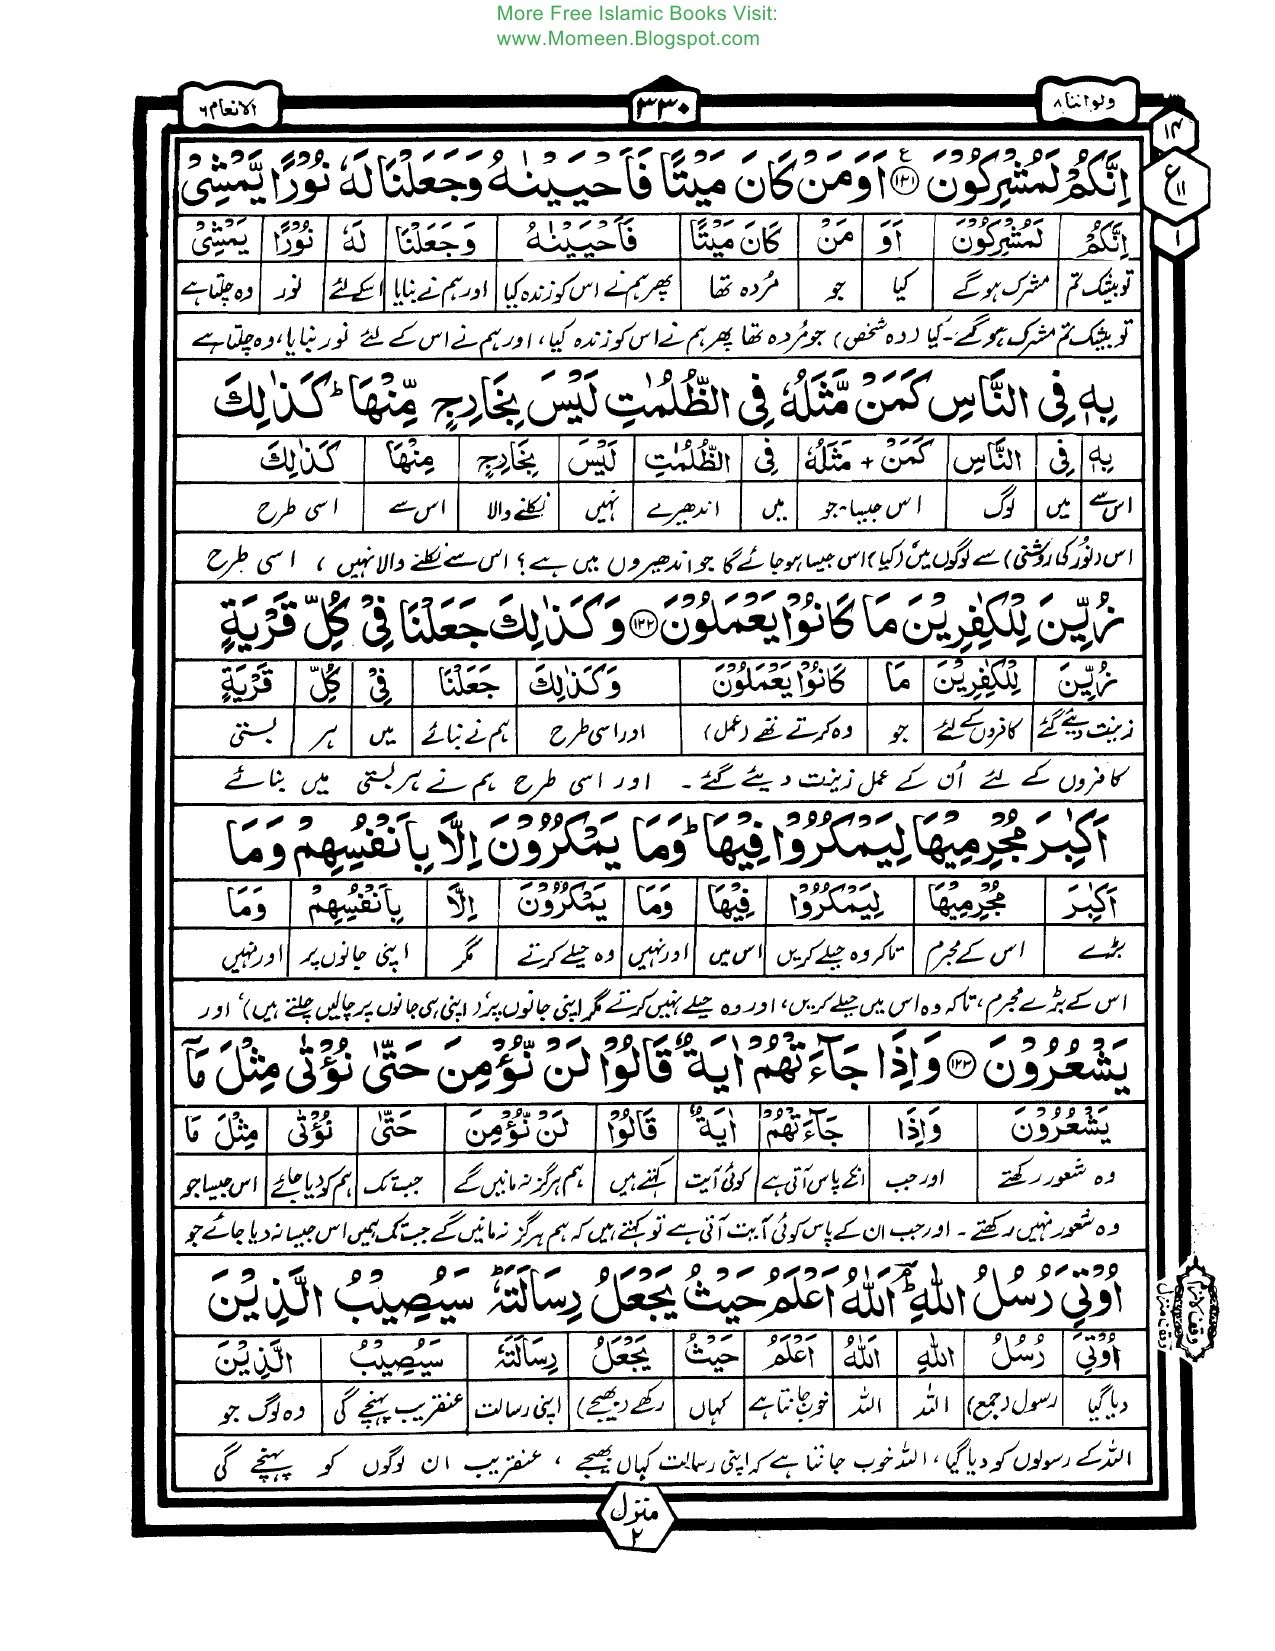 More Free Islamic Books Visit:
www.Momeen.Blogspot.com
ولواننا ۸
۳۳۰
الانعام ۶
۱۴
ع
۱۱
۱
اِنَّكُمْ لَمُشْرِكُوْنَ ﴿۱۲۱﴾ اَوَمَنْ كَانَ مَيْتًا فَاَحْيَيْنٰهُ وَجَعَلْنَا لَهٗ نُوْرًا يَّمْشِىْ
اِنَّكُمْ لَمُشْرِكُوْنَ اَوَ مَنْ كَانَ مَيْتًا فَاَحْيَيْنٰهُ وَجَعَلْنَا لَهٗ نُوْرًا يَمْشِىْ
تو بیشک تم مشرک ہوگے کیا جو مُردہ تھا پھر ہم نے اس کو زندہ کیا اور ہم نے بنایا اسکے لئے نور وہ چلتا ہے
تو بیشک تم مشرک ہوگے۔ کیا (وہ شخص) جو مُردہ تھا پھر ہم نے اس کو زندہ کیا، اور ہم نے اس کے لئے نور بنایا، وہ چلتا ہے
بِهٖ فِى النَّاسِ كَمَنْ مَّثَلُهٗ فِى الظُّلُمٰتِ لَيْسَ بِخَارِجٍ مِّنْهَا ؕ كَذٰلِكَ
بِهٖ فِى النَّاسِ كَمَنْ + مَثَلُهٗ فِى الظُّلُمٰتِ لَيْسَ بِخَارِجٍ مِنْهَا كَذٰلِكَ
اس سے میں لوگ اس جیسا۔جو میں اندھیرے نہیں نکلنے والا اس سے اسی طرح
اس (نور کی روشنی) سے لوگوں میں (کیا) اس جیسا ہو جائے گا جو اندھیروں میں ہے؟ اس سے نکلنے والا نہیں، اسی طرح
زُيِّنَ لِلْكٰفِرِيْنَ مَا كَانُوْا يَعْمَلُوْنَ ﴿۱۲۲﴾ وَكَذٰلِكَ جَعَلْنَا فِىْ كُلِّ قَرْيَةٍ
زُيِّنَ لِلْكٰفِرِيْنَ مَا كَانُوْا يَعْمَلُوْنَ وَكَذٰلِكَ جَعَلْنَا فِىْ كُلِّ قَرْيَةٍ
زینت دیئے گئے کافروں کے لئے جو وہ کرتے تھے (عمل) اور اسی طرح ہم نے بنائے میں ہر بستی
کافروں کے لئے اُن کے عمل زینت دیئے گئے۔ اور اسی طرح ہم نے ہر بستی میں بنائے
اَكٰبِرَ مُجْرِمِيْهَا لِيَمْكُرُوْا فِيْهَا ؕ وَمَا يَمْكُرُوْنَ اِلَّا بِاَنْفُسِهِمْ وَمَا
اَكٰبِرَ مُجْرِمِيْهَا لِيَمْكُرُوْا فِيْهَا وَمَا يَمْكُرُوْنَ اِلَّا بِاَنْفُسِهِمْ وَمَا
بڑے اس کے مجرم تاکہ وہ حیلے کریں اس میں اور نہیں وہ حیلے کرتے مگر اپنی جانوں پر اور نہیں
اس کے بڑے مجرم، تاکہ وہ اس میں حیلے کریں، اور وہ حیلے نہیں کرتے مگر اپنی جانوں پر (اپنی ہی جانوں پر چالیں چلتے ہیں)، اور
يَشْعُرُوْنَ ﴿۱۲۳﴾ وَاِذَا جَآءَتْهُمْ اٰيَةٌ قَالُوْا لَنْ نُّؤْمِنَ حَتّٰى نُؤْتٰى مِثْلَ مَاۤ
يَشْعُرُوْنَ وَاِذَا جَآءَتْهُمْ اٰيَةٌ قَالُوْا لَنْ نُّؤْمِنَ حَتّٰى نُؤْتٰى مِثْلَ مَا
وہ شعور رکھتے اور جب انکے پاس آتی ہے کوئی آیت کہتے ہیں ہم ہرگز نہ مانیں گے جب تک ہم کو دیا جائے اس جیسا جو
وہ شعور نہیں رکھتے۔ اور جب ان کے پاس کوئی آیت آتی ہے تو کہتے ہیں کہ ہم ہرگز نہ مانیں گے جب تک ہمیں اس جیسا نہ دیا جائے جو
اُوْتِىَ رُسُلُ اللّٰهِ ؔۘ اَللّٰهُ اَعْلَمُ حَيْثُ يَجْعَلُ رِسَالَتَهٗ ؕ سَيُصِيْبُ الَّذِيْنَ
اُوْتِىَ رُسُلُ اللّٰهِ اَللّٰهُ اَعْلَمُ حَيْثُ يَجْعَلُ رِسَالَتَهٗ سَيُصِيْبُ الَّذِيْنَ
دیا گیا رسول (جمع) اللہ اللہ خوب جانتا ہے کہاں رکھے (بھیجے) اپنی رسالت عنقریب پہنچے گی وہ لوگ جو
اللہ کے رسولوں کو دیا گیا، اللہ خوب جانتا ہے کہ اپنی رسالت کہاں بھیجے، عنقریب ان لوگوں کو پہنچے گی
وقف منزل
منزل
۲